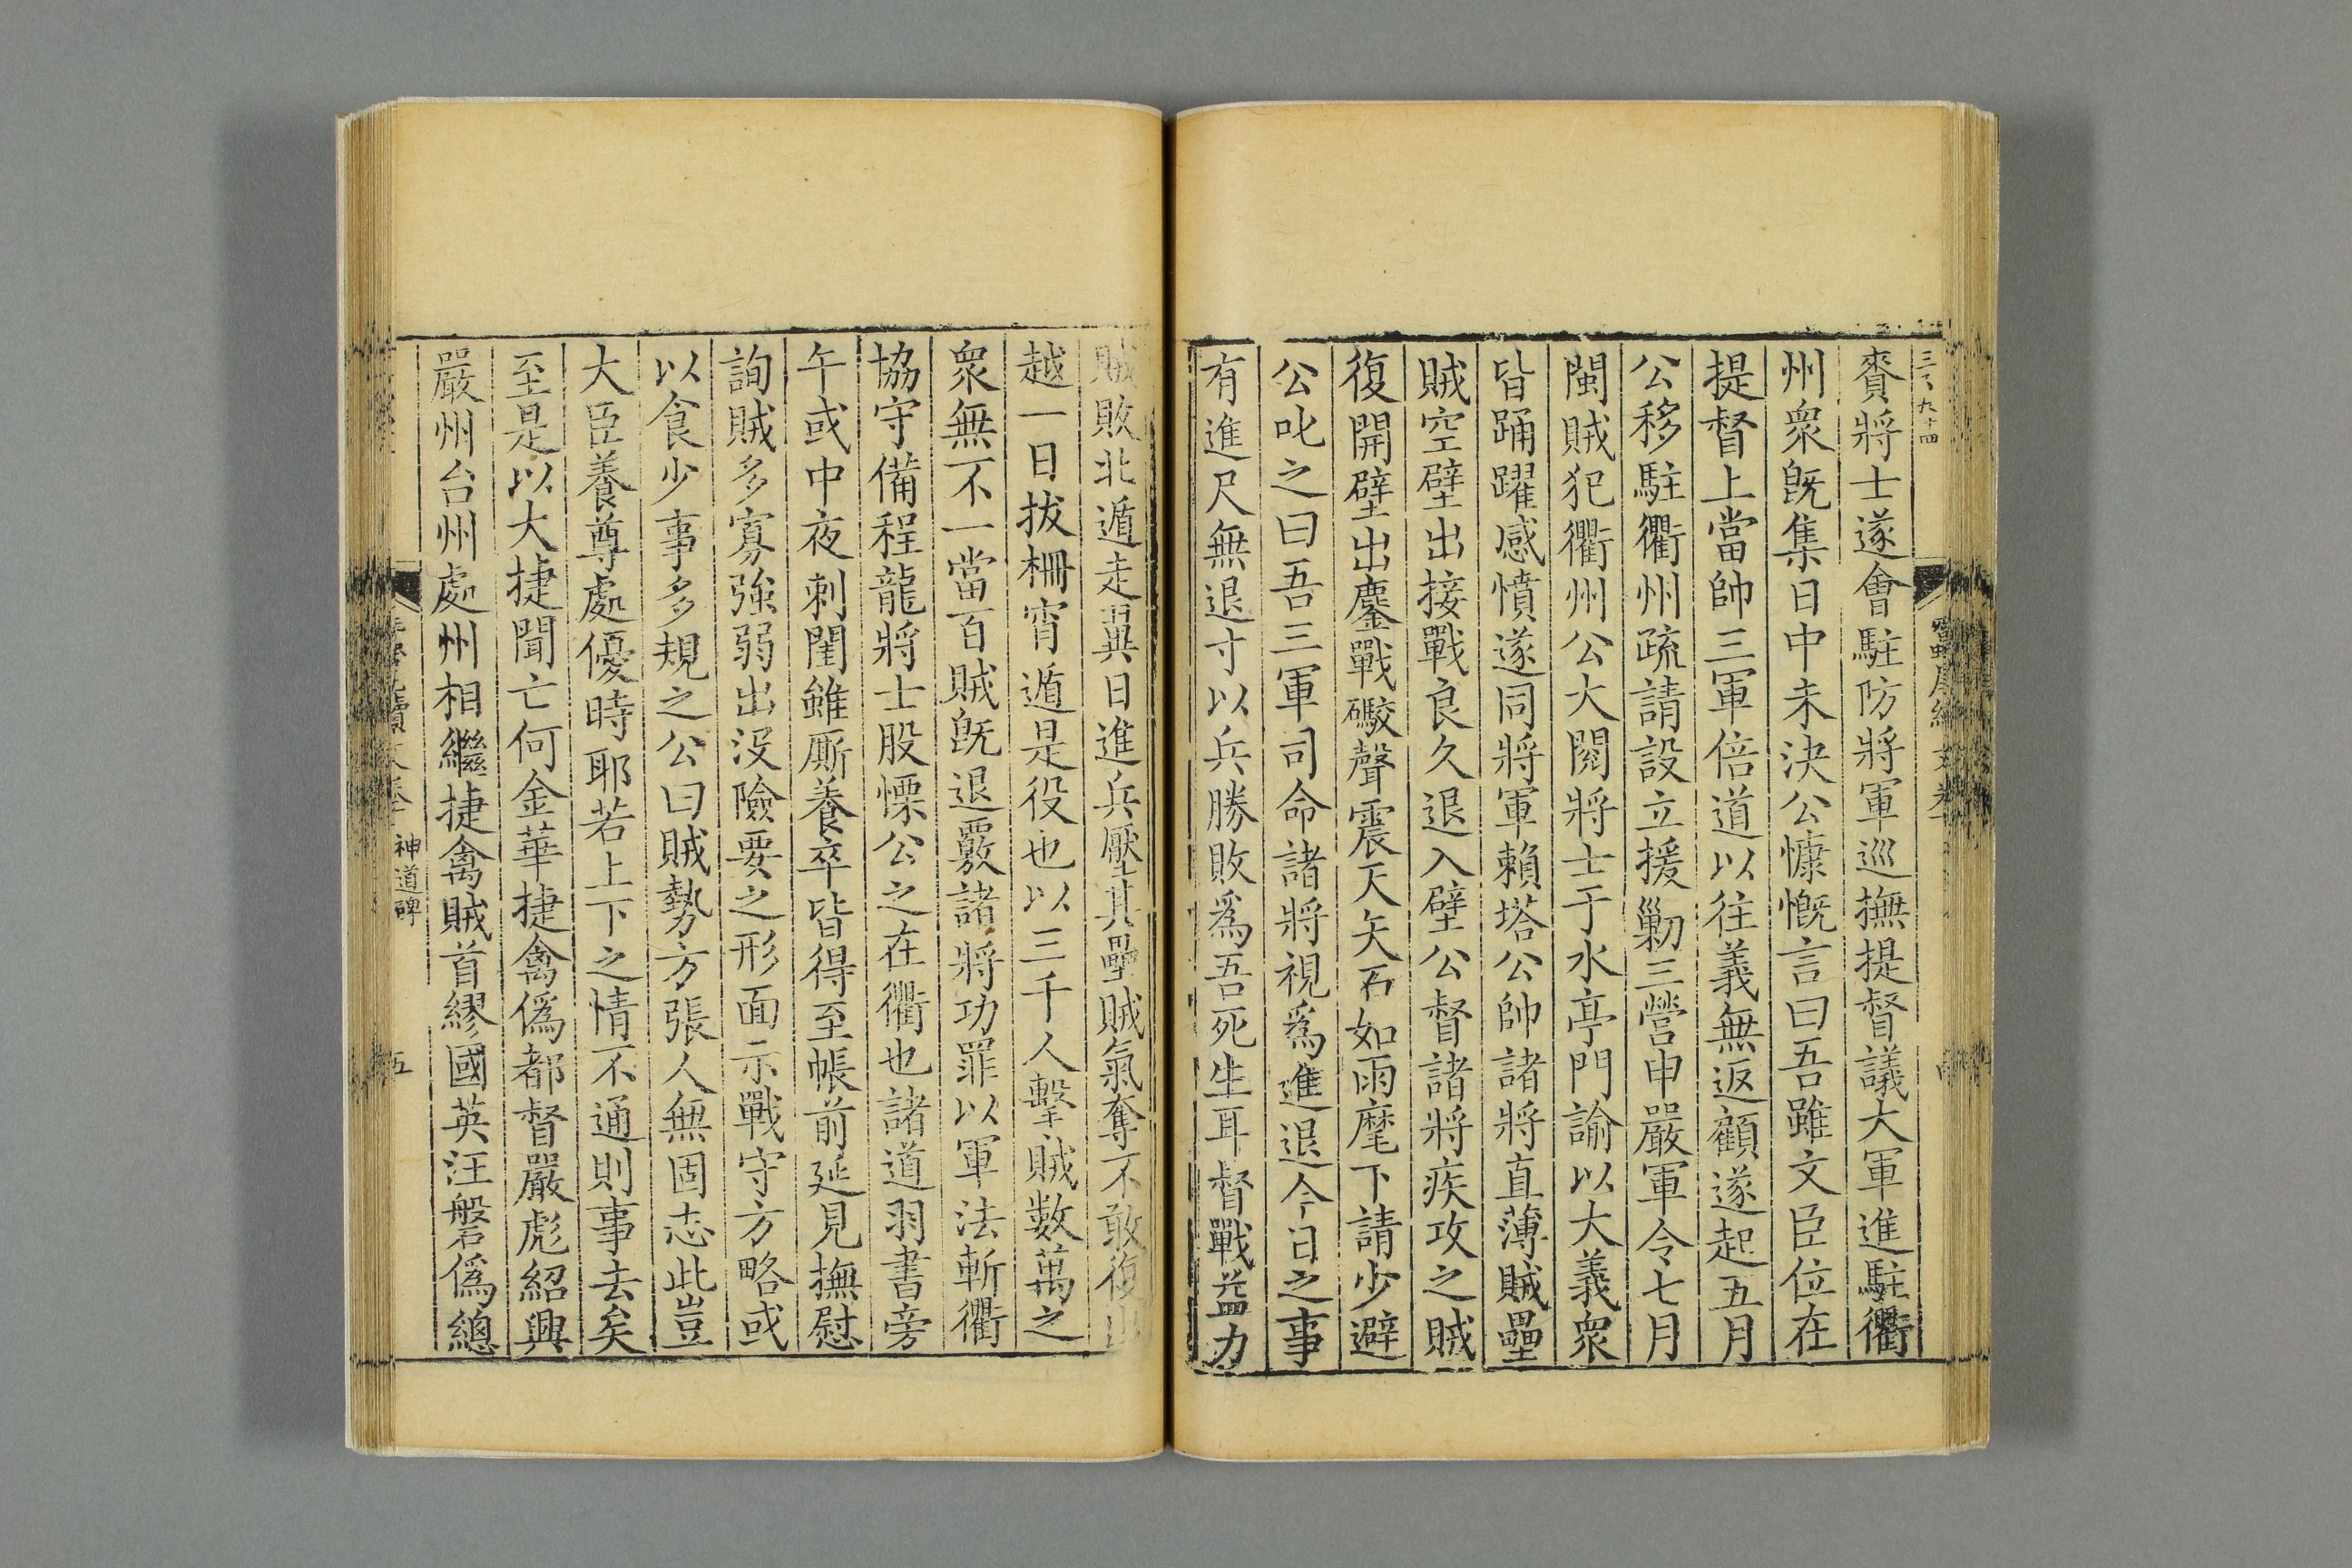 賚將士遂會駐防將軍巡撫提督議大軍進駐衢
州衆旣集日中未決公慷慨言曰吾雖文臣位在
提督上當帥三軍倍道以往義無返顧遂起五月
公移駐衢州疏請設立援剿三營申嚴軍令七月
閩賊犯衢州公大閱將士于水亭門諭以大義衆
皆踊躍感憤遂同將軍賴塔公帥諸將直薄賊壘
賊空壁出接戰良久退入壁公督諸將疾攻之賊
復開壁出鏖戰礮聲震天矢石如雨麾下請少避
公叱之曰吾三軍司命諸將視爲進退今日之事
有進尺無退寸以兵勝敗爲吾死生耳督戰益力
賊敗北遁走翼日進兵壓其壘賊氣奪不敢復出
越一日拔柵宵遁是役也以三千人擊賊數萬之
衆無不一當百賊旣退覈諸將功罪以軍法斬衢
協守備程龍將士股慄公之在衢也諸道羽書旁
午或中夜刺閨雖厮養卒皆得至帳前延見撫慰
詢賊多寡強弱出沒險要之形面示戰守方略或
以食少事多規之公曰賊勢方張人無固志此豈
大臣養尊處優時耶若上下之情不通則事去矣
至是以大捷聞亡何金華捷禽僞都督嚴彪紹興
嚴州台州處州相繼捷禽賊首繆國英汪磐僞總
神道碑
五